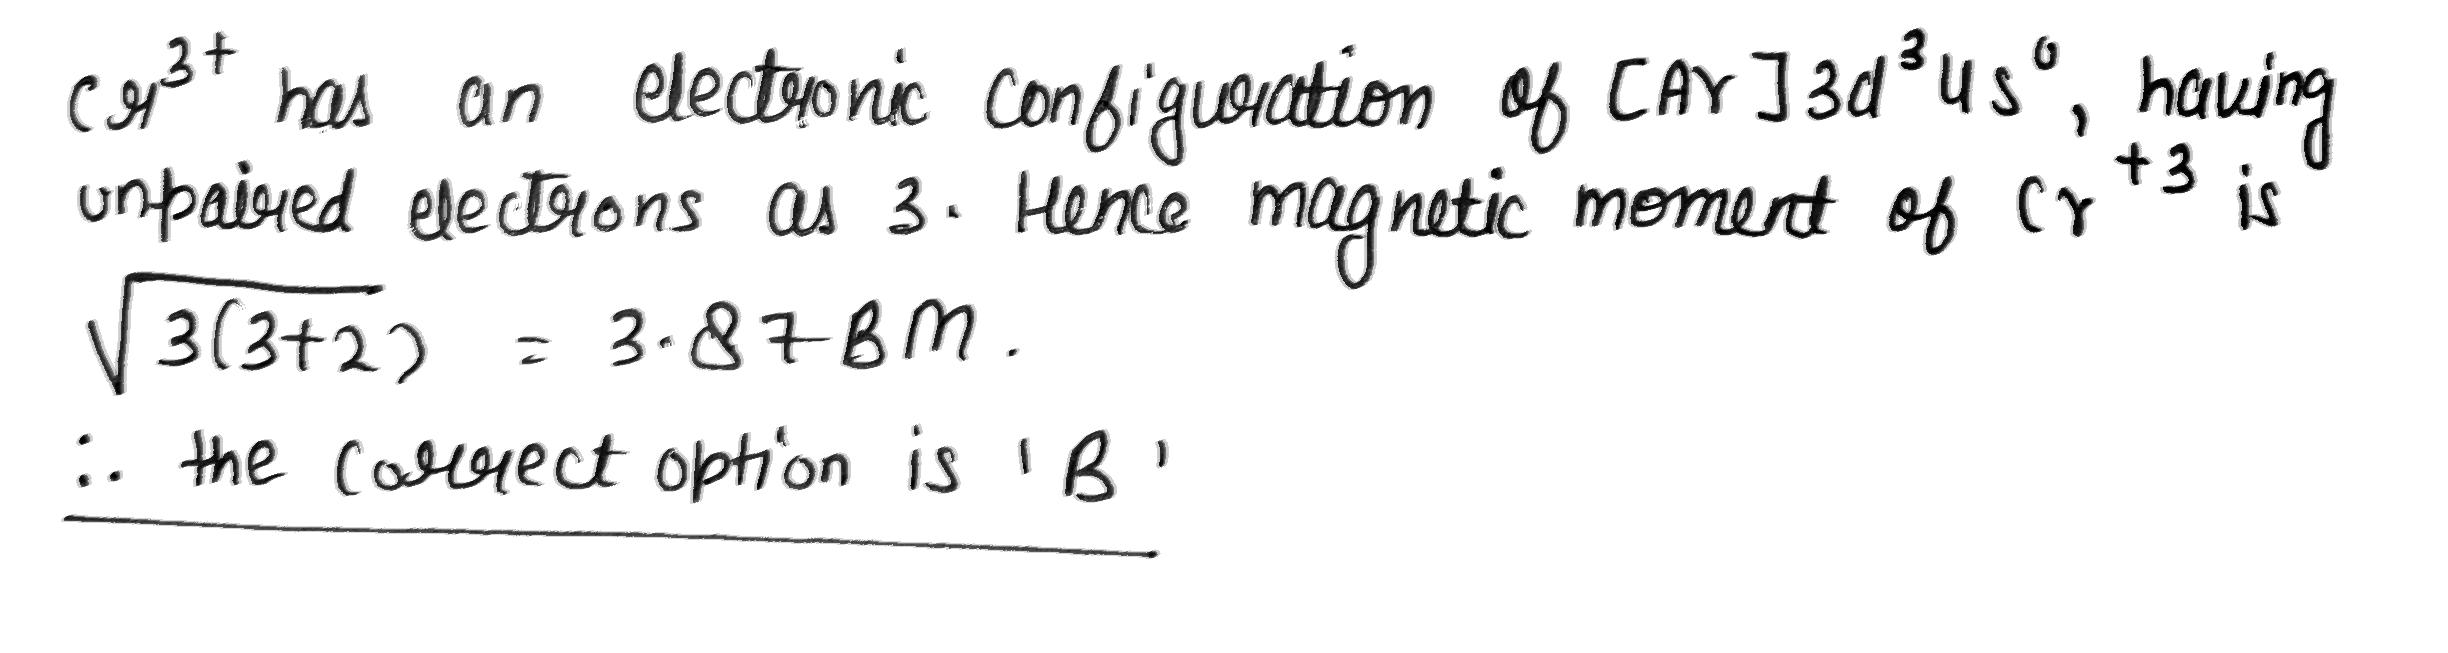 Cr³⁺ has an electronic configuration of [Ar]3d³4s⁰, having
unpaired electrons as 3. Hence magnetic moment of Cr⁺³ is
√3(3+2) = 3.87BM.
∴ the correct option is 'B'